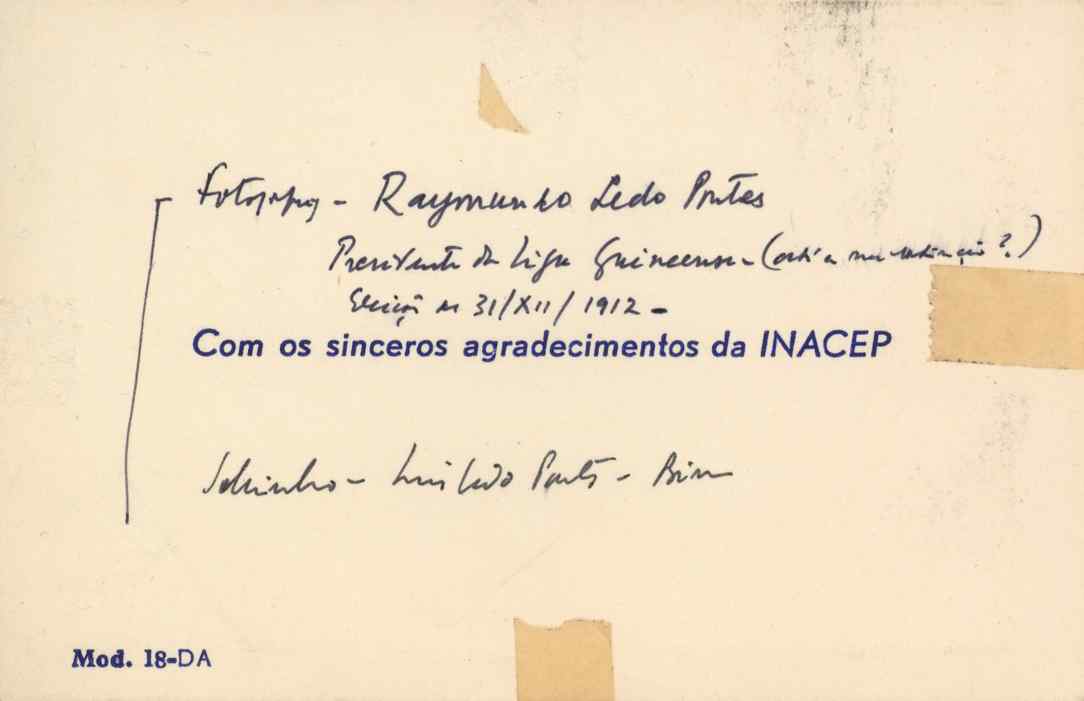 Fotografia - Raymundo Ledo Pontes
Presidente da Liga Guineense - (está
Eleição de 31/XII/1912 -
Com os sinceros agradecimentos da INACEP
Sobrinho - Luis Ledo Pontes -
Mod. 18-DA